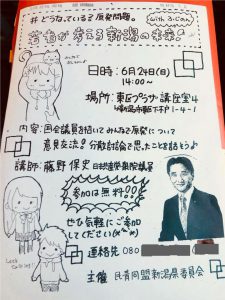 #どうなっている?原発問題。
with ふじのん
若者が考える新潟の未来!
日時:6月24日(日)
14:00〜
場所:東区プラザ 講座室4
新潟市東区下木戸1-4-1
内容:国会議員を招いてみんなで原発について
意見交流!分散討論会で思ったことを話そう♪
講師:藤野 保史 日本共産党衆院議員
参加は無料!!
ぜひ気軽にご参加
してください
Let's
連絡先 080
主催 民青同盟新潟県委員会